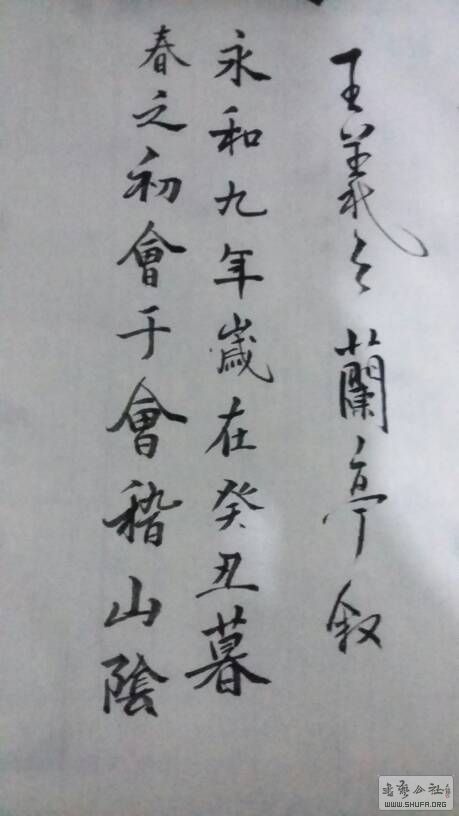 王羲之蘭亭叙
永和九年歲在癸丑暮
春之初會于會稽山陰
WWW.SHUFA.ORG